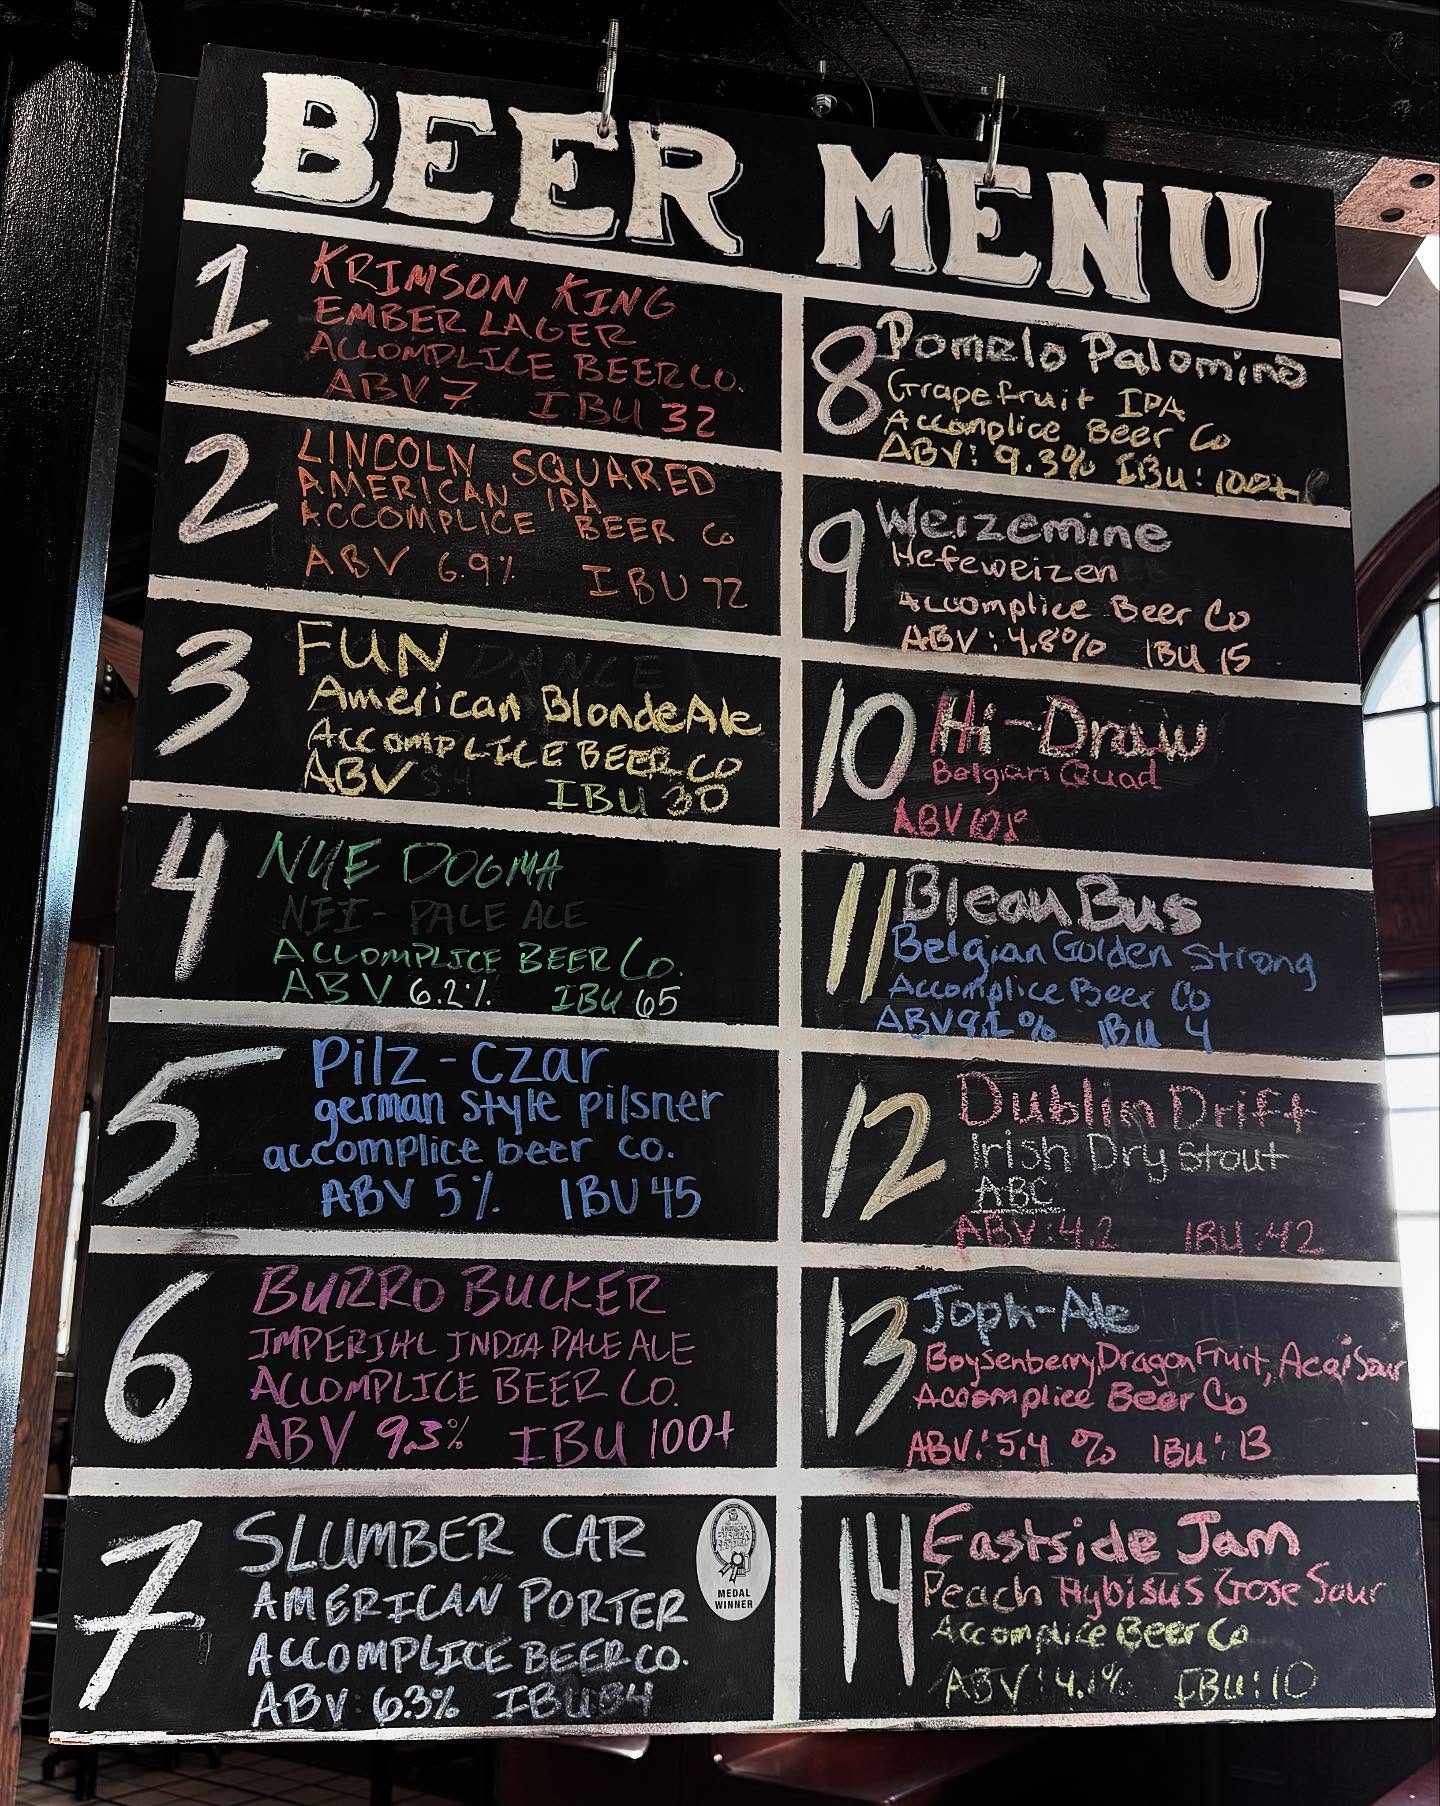 BEER MENU
1
KRIMSON KING
EMBER LAGER
ACCOMPLICE BEER CO.
ABV 7 IBU 32
2
LINCOLN SQUARED
AMERICAN IPA
ACCOMPLICE BEER Co
ABV 6.9% IBU 72
3
FUN DANCE
American Blonde Ale
ACCOMPLICE BEER CO
ABV 5.4 IBU 30
4
NYE DOGMA
NEI- PALE ALE
ACCOMPLICE BEER Co.
ABV 6.2% IBU 65
5
Pilz-Czar
german style pilsner
accomplice beer co.
ABV 5% IBU 45
6
BURRO BUCKER
IMPERIAL INDIA PALE ALE
ACCOMPLICE BEER CO.
ABV 9.3% IBU 100+
7
SLUMBER CAR
AMERICAN PORTER
ACCOMPLICE BEER CO.
ABV 6.3% IBU 34
MEDAL
WINNER
8
Pomelo Palomino
Grapefruit IPA
Accomplice Beer Co
ABV: 9.3% IBU: 100+
9
Weizemine
Hefeweizen
Accomplice Beer Co
ABV: 4.8% IBU 15
10
Hi-Draw
Belgian Quad
ABV
11
Blean Bus
Belgian Golden Strong
Accomplice Beer Co
ABV % IBU 4
12
Dublin Drift
Irish Dry Stout
ABC
ABV: 4.2 IBU: 42
13
Joph-Ale
Boysenberry, Dragon Fruit, Acai Sour
Accomplice Beer Co
ABV: 5.4 % IBU: 13
14
Eastside Jam
Peach Hybisus Gose Sour
Accomplice Beer Co
ABV: 4.1% IBU: 10